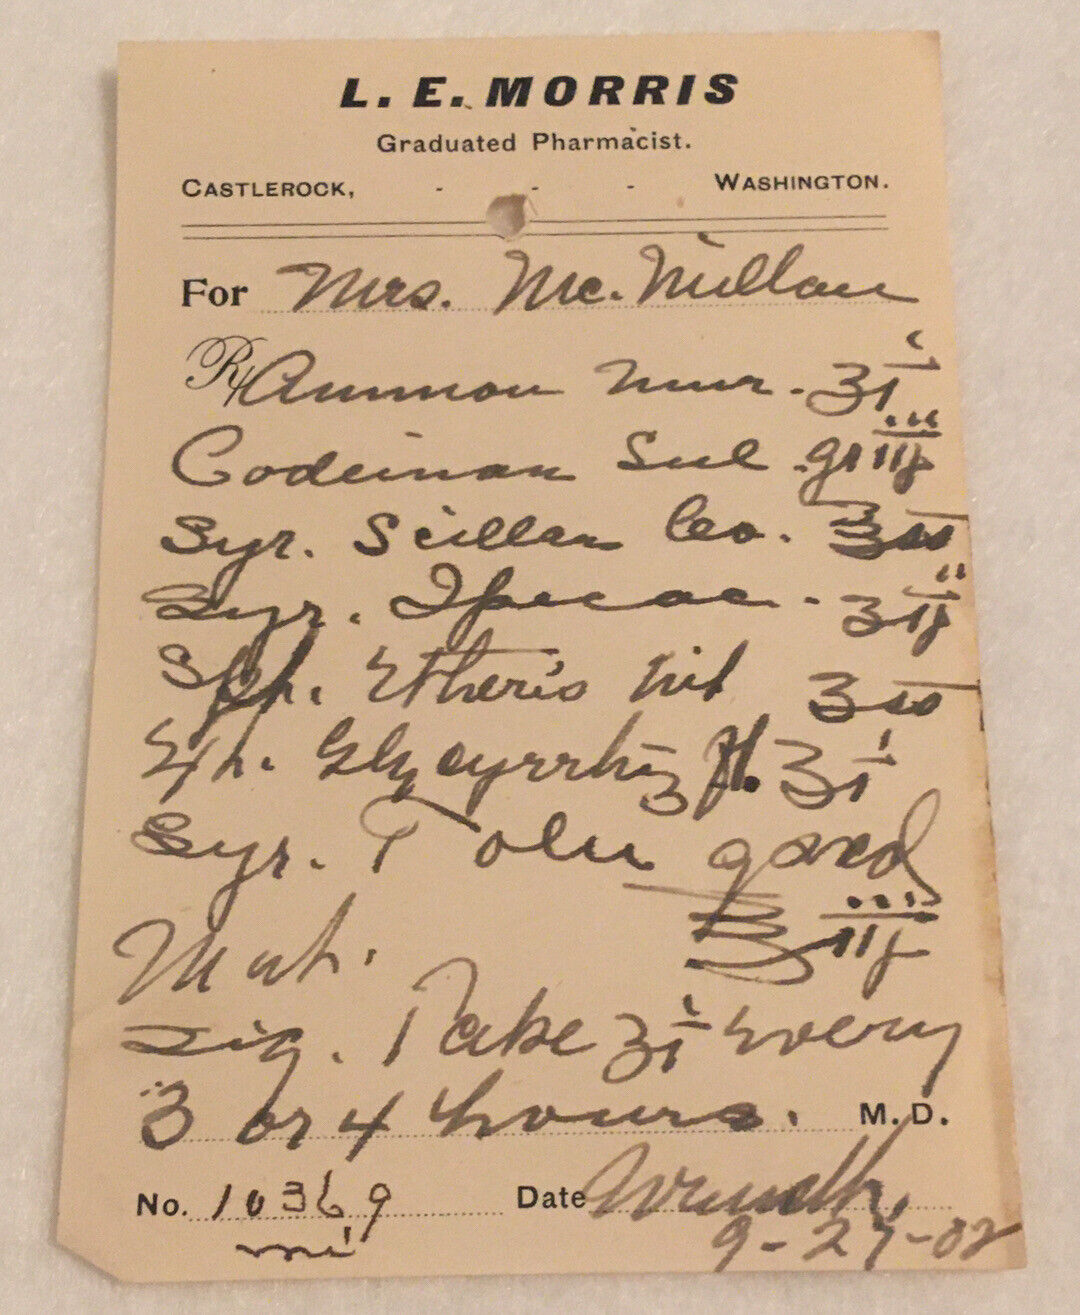 L. E. MORRIS
Graduated Pharmacist.
CASTLEROCK, - - - WASHINGTON.
For Mrs. McMillan
Rx Ammon Mur. ʒi
Codeinae Sul. gr iij
Syr. Scillae Co. ℥ss
Syr. Ipecac. ʒij
Sph. Etheris Nit ʒss
Ex. Glycyrrhiz fl. ʒi
Syr. Tolu qsad
℥iij
Sig. Take ʒi Every
3 or 4 hours. M.D.
No. 10369 Date
9-27-02